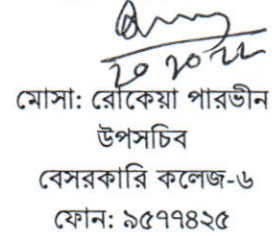 ২০ ১০ ২২
মোসা: রোকেয়া পারভীন
উপসচিব
বেসরকারি কলেজ-৬
ফোন: ৯৫৭৭৪২৫